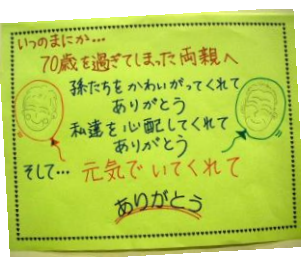 いつのまにか…
70歳を過ぎてしまった両親へ
孫たちをかわいがってくれて
ありがとう
私達を心配してくれて
ありがとう
そして… 元気でいてくれて
ありがとう